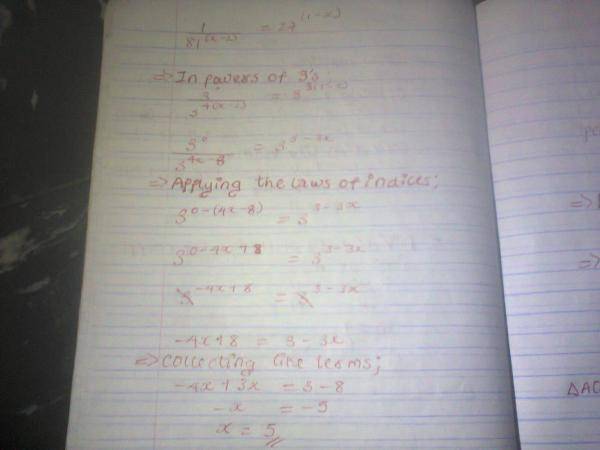 1/81^(x-2) = 27^(1-x)
⇒ In powers of 3's;
3^0/3^4(x-2) = 3^3(1-x)
3^0/3^4x-8 = 3^3-3x
⇒ Applying the laws of indices;
3^0-(4x-8) = 3^3-3x
3^0-4x+8 = 3^3-3x
3^-4x+8 = 3^3-3x
-4x+8 = 3-3x
⇒ Collecting like terms;
-4x+3x = 3-8
-x = -5
x = 5//
⇒
⇒
ΔAC